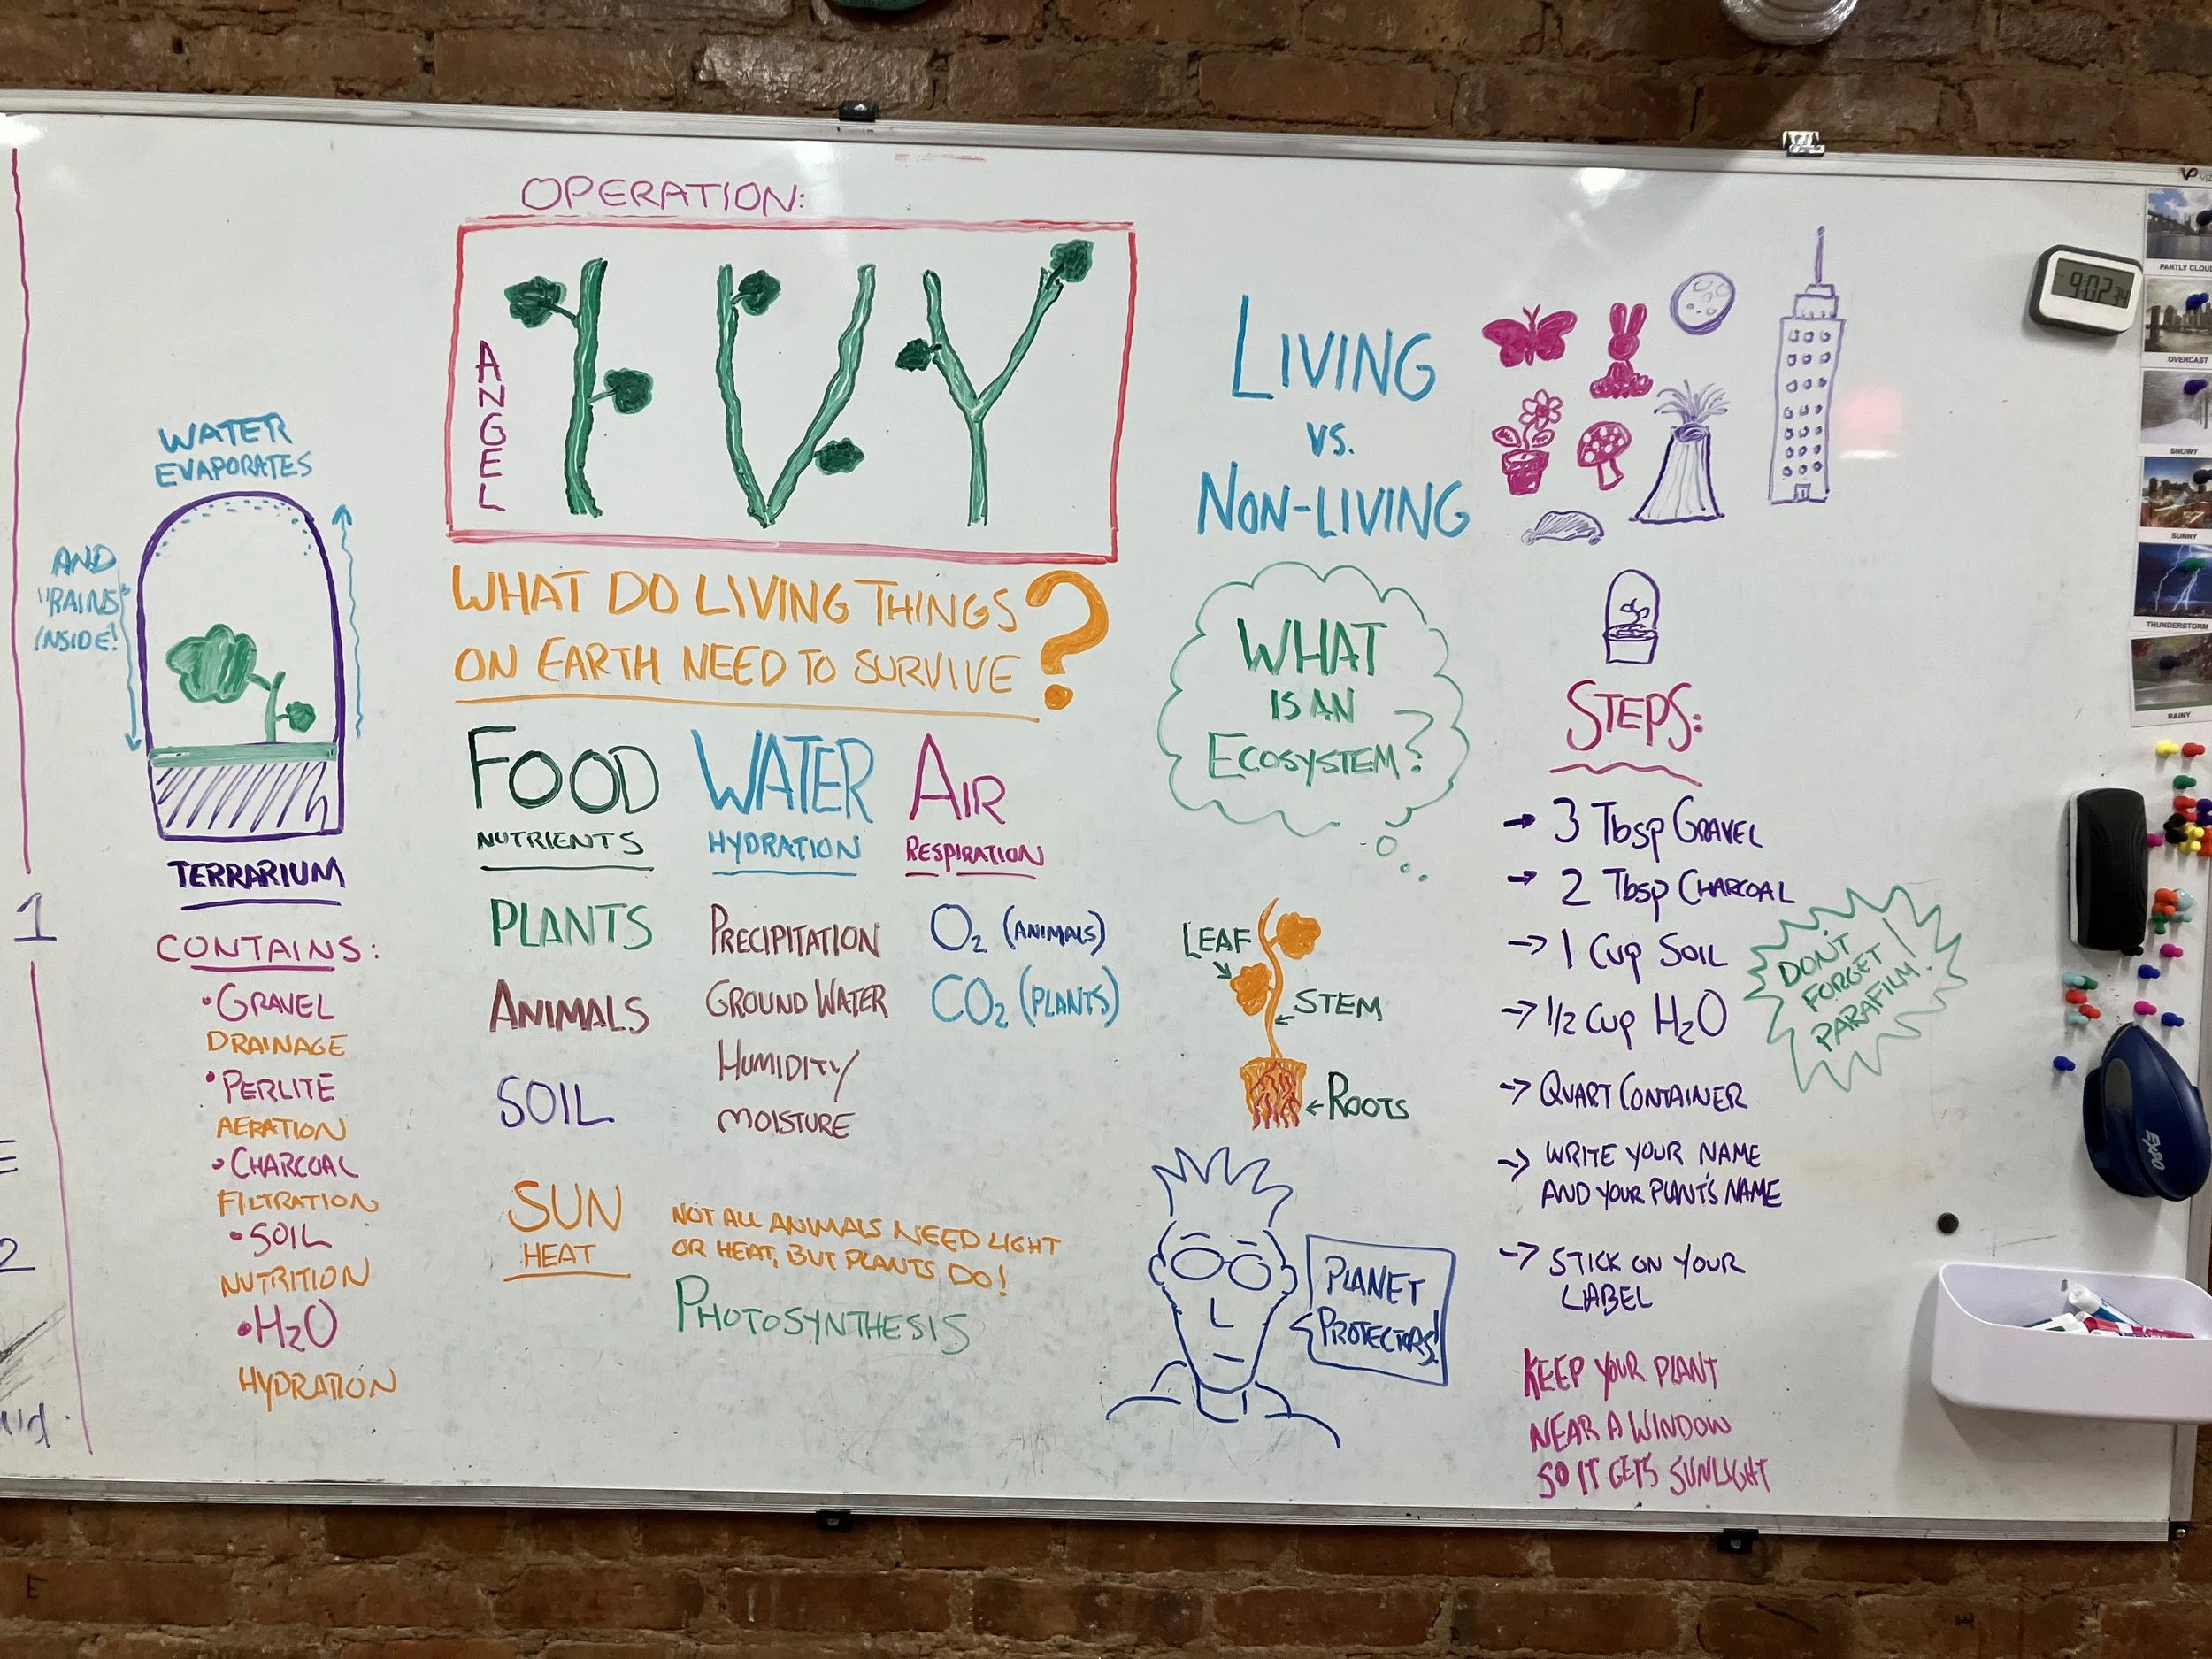 OPERATION:
ANGEL
IVY
WATER
EVAPORATES
AND
"RAINS"
INSIDE!
TERRARIUM
CONTAINS:
•GRAVEL
DRAINAGE
•PERLITE
AERATION
•CHARCOAL
FILTRATION
•SOIL
NUTRITION
•H2O
HYDRATION
1
2
WHAT DO LIVING THINGS
ON EARTH NEED TO SURVIVE?
FOOD
NUTRIENTS
PLANTS
ANIMALS
SOIL
WATER
HYDRATION
PRECIPITATION
GROUND WATER
HUMIDITY/
MOISTURE
AIR
RESPIRATION
O2 (ANIMALS)
CO2 (PLANTS)
SUN
HEAT
NOT ALL ANIMALS NEED LIGHT
OR HEAT, BUT PLANTS DO!
PHOTOSYNTHESIS
LIVING
VS.
NON-LIVING
WHAT
IS AN
ECOSYSTEM?
LEAF
STEM
ROOTS
PLANET
PROTECTORS!
STEPS:
→ 3 Tbsp GRAVEL
→ 2 Tbsp CHARCOAL
→ 1 Cup SOIL
→ 1/2 Cup H2O
→ QUART CONTAINER
→ WRITE YOUR NAME
AND YOUR PLANT'S NAME
→ STICK ON YOUR
LABEL
DON'T
FORGET
PARAFILM!
KEEP YOUR PLANT
NEAR A WINDOW
SO IT GETS SUNLIGHT
9:02
PARTLY CLOUD
OVERCAST
SNOWY
SUNNY
THUNDERSTORM
RAINY
EXPO